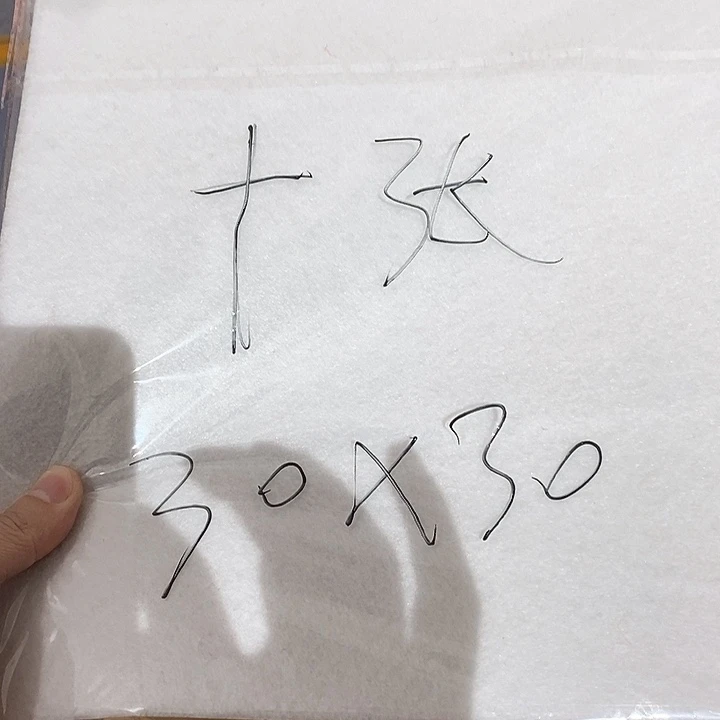 十张
30X30